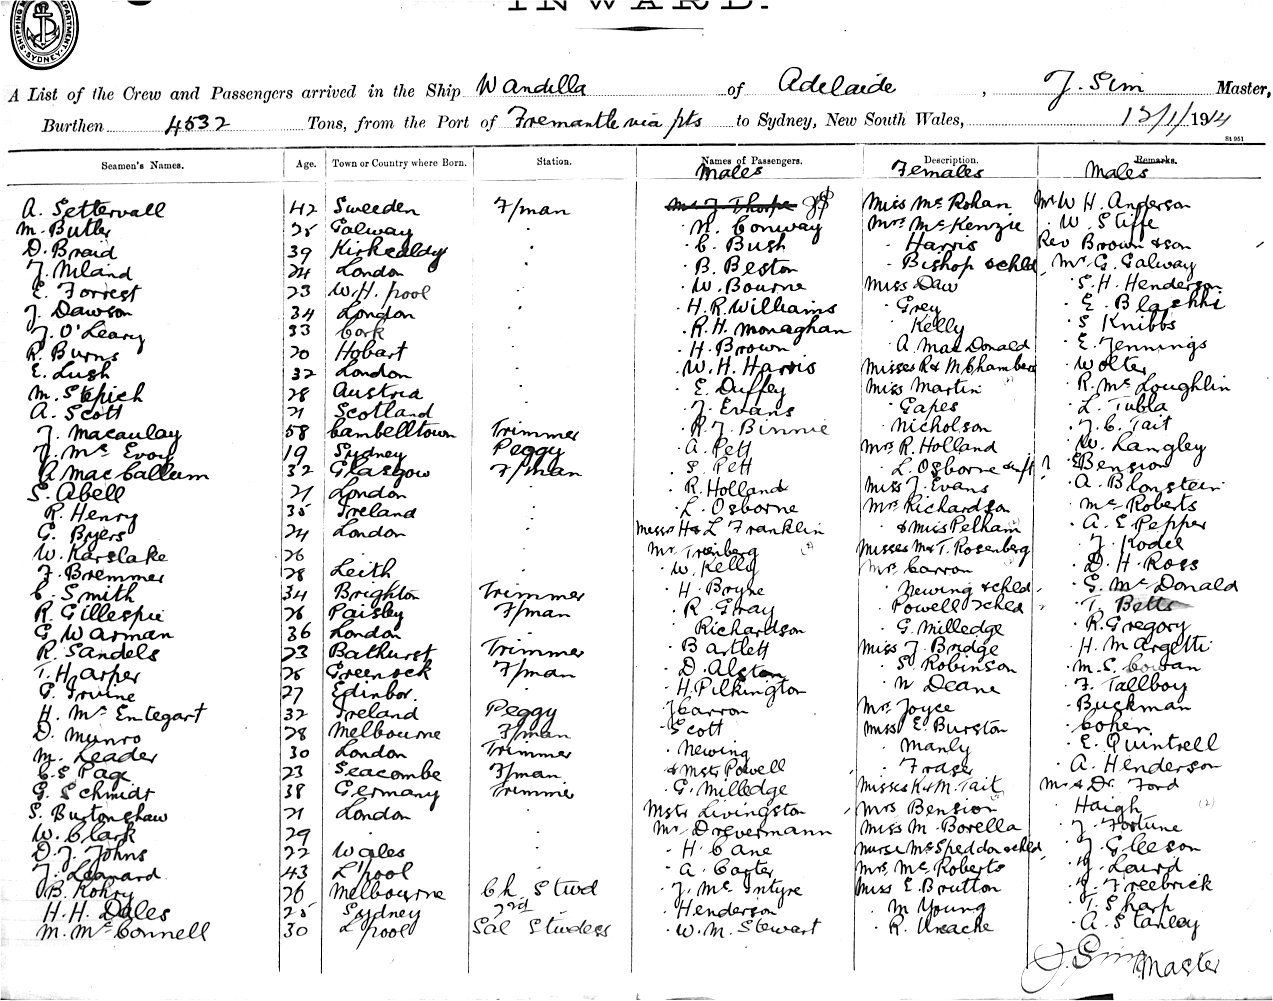 INWARD.
SHIPPING DEPARTMENT SYDNEY
A List of the Crew and Passengers arrived in the Ship Wandilla of Adelaide, J. Sim Master,
Burthen 4532 Tons, from the Port of Fremantle via pts to Sydney, New South Wales, 12/1/1914
St 951
Seamen's Names. Age. Town or Country where Born. Station. Names of Passengers. Description. Remarks.
Males Females Males
A. Settervall 42 Sweeden F/man Mr J Thorpe Miss McRohan Mr W H. Anderson
M. Butler 25 Galway · N. Conway Mrs McKenzie · W Stiffe
D. Braid 39 Kirkcaldy · C. Bush · Harris Rev Brown & son
J. 24 London · B. Beston · Bishop & chld Mr G. Galway
E. Forrest 23 W. H. pool · W. Bourne Miss Daw · S. H. Henderson
J. Dawson 34 London · H. R. Williams · Grey · E
J. O'Leary 33 Cork · R. H. Monaghan · Kelly · S Knibbs
R. Burns 20 Hobart · H. Brown · A. MacDonald · E. Jennings
E. Lush 32 London · W. H. Harris Misses R & M Chambers · Wolter
M. Stipich 28 Austria · E. Duffey Miss Martin · R. McLoughlin
A. Scott 21 Scotland · J. Evans · Gapes · L. Tubla
J. Macaulay 58 Cambelltown Trimmer · R. J. Binnie · Nicholson · J. C. Tait
J. McEvoy 19 Sydney Peggy · A. Pett Mrs R. Holland · W. Langley
A MacCallum 32 Glasgow F/man · S. Pett · L. Osborne & inft · E Bension
S. Abell 21 London · R. Holland Miss J. Evans · A. Blonstein
R. Henry 35 Ireland · L. Osborne Mrs Richardson · McRoberts
G. Byers 24 London Messrs H & L Franklin · & Miss Pelham · A. E Pepper
W. Karslake 26 Mr Trenberg Misses M & T. Rosenberg · J. Kodel
J. Bremmer 28 Leith · W. Kelly Mrs Carron · D. H. Ross
C. Smith 34 Brighton Trimmer · H Bryne · Newing & chld · G. McDonald
R. Gillespie 26 Paisley F/man · R. Gray · Powell 2 chld · T. Betts
G. Warman 36 London · Richardson · G. Milledge · R. Gregory
R. Sandels 23 Bathurst Trimmer · Bartlett Miss J. Bridge · H Margetti
T. Harper 26 Greenock F/man · D. Alston · S. Robinson · M. S. Cowan
G. Irvine 27 Edinbor. · H. Pilkington · N Deane · F. Tallboy
H. McEntegart 32 Ireland Peggy J Carron Mrs Joyce · Buckman
D. Munro 28 Melbourne F/man · Scott Miss E. Burston · Cohen
M. Leader 30 London Trimmer · Newing · Manly · E. Quintrell
C. S Page 23 Seacombe F/man · & Mstr Powell · Fraser · A. Henderson
G. Schmidt 38 Germany Trimmer · G. Milledge Misses K & M. Tait Mr & Dr Ford
S. Burtonshaw 21 London Mstr Livingston Mrs Bension · Haigh (2)
W. Clark 29 Mr Drevermann Miss M. Borella · J. Fortune
D. J. Johns 22 Wales · H Cane Nurse McSpeddon & chld · J. Gleeson
J. Leonard 43 L'pool · A. Carter Mrs McRoberts · G. Laurd
B. Rohry 26 Melbourne Ch Stwd · J. McIntyre Miss E. Brutton · J. Freebrick
H. H. Dales 25 Sydney 2nd · Henderson · M Young · T. Sharp
M. McConnell 30 L'pool Sal Stwdess · W. M. Stewart · R. Ureache · A. Stanley
J. Sim
Master